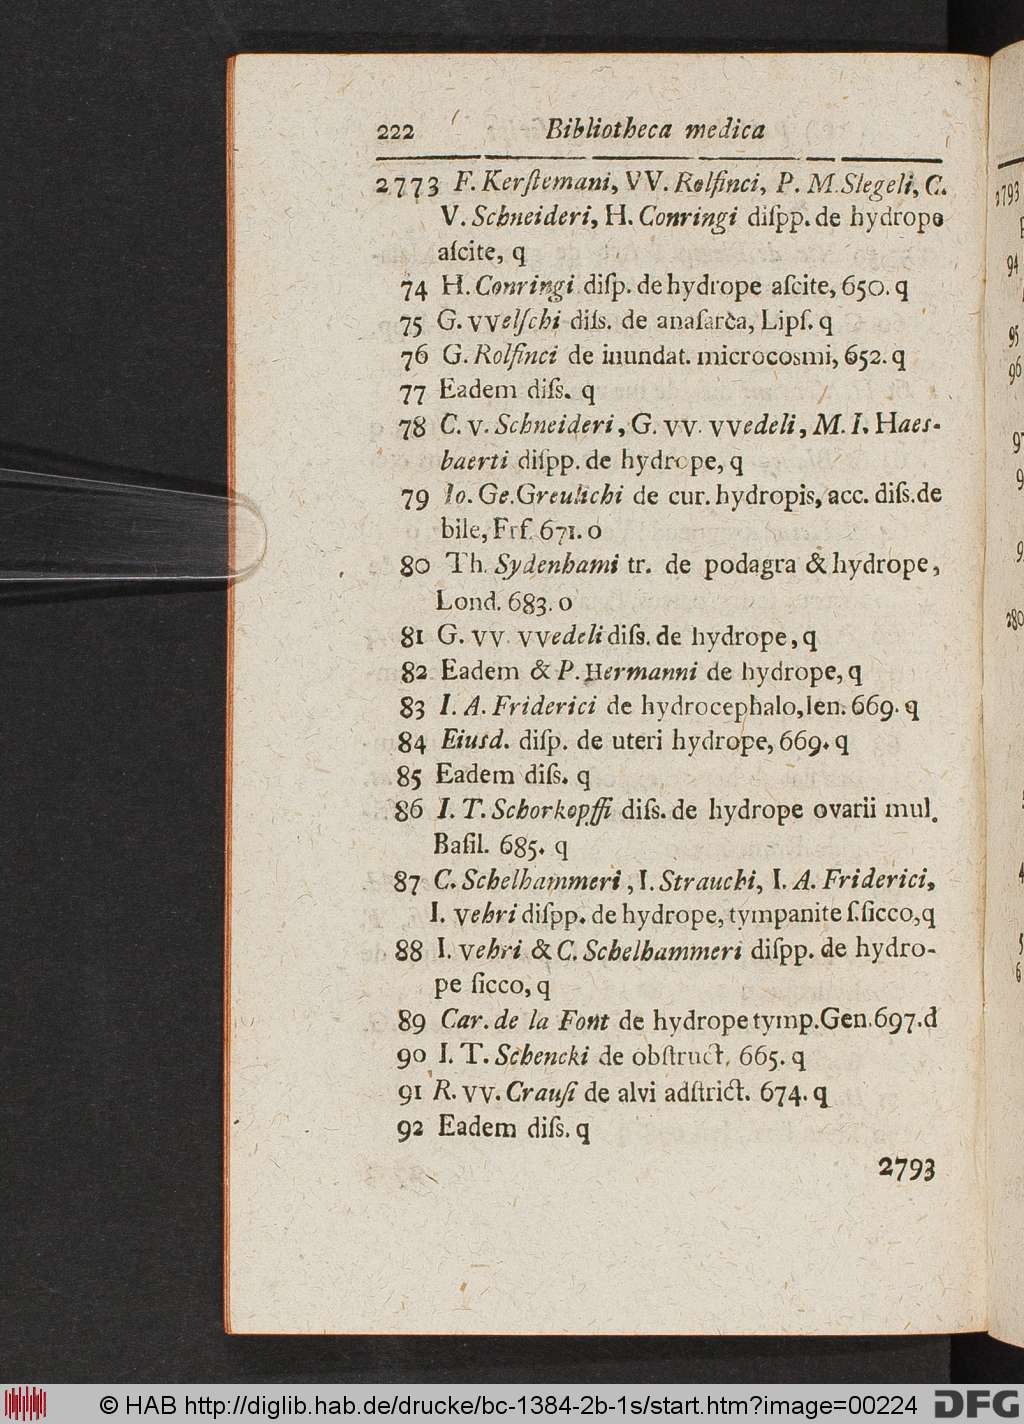 222 Bibliotheca medica
2773 F. Kerſtemani, VV. Rolfinci, P. M. Slegeli, C.
V. Schneideri, H. Conringi diſpp. de hydrope
aſcite, q
74 H. Conringi diſp. de hydrope aſcite, 650. q
75 G. vvelſchi diſs. de anaſarca, Lipſ. q
76 G. Rolfinci de inundat. microcosmi, 652. q
77 Eadem diſs. q
78 C. v. Schneideri, G. vv. vvedeli, M. I. Haes-
baerti diſpp. de hydrope, q
79 Io. Ge. Greulichi de cur. hydropis, acc. diſs. de
bile, Frf. 671. o
80 Th. Sydenhami tr. de podagra & hydrope,
Lond. 683. o
81 G. vv. vvedeli diſs. de hydrope, q
82 Eadem & P. Hermanni de hydrope, q
83 I. A. Friderici de hydrocephalo, Ien. 669. q
84 Eiusd. diſp. de uteri hydrope, 669. q
85 Eadem diſs. q
86 I. T. Schorkopffi diſs. de hydrope ovarii mul.
Baſil. 685. q
87 C. Schelhammeri, I. Strauchi, I. A. Friderici,
I. vehri diſpp. de hydrope, tympanite ſ. ſicco, q
88 I. vehri & C. Schelhammeri diſpp. de hydro-
pe ſicco, q
89 Car. de la Font de hydrope tymp. Gen. 697. d
90 I. T. Schencki de obſtruct. 665. q
91 R. vv. Crauſi de alvi adſtrict. 674. q
92 Eadem diſs. q
2793
© HAB http://diglib.hab.de/drucke/bc-1384-2b-1s/start.htm?image=00224
DFG